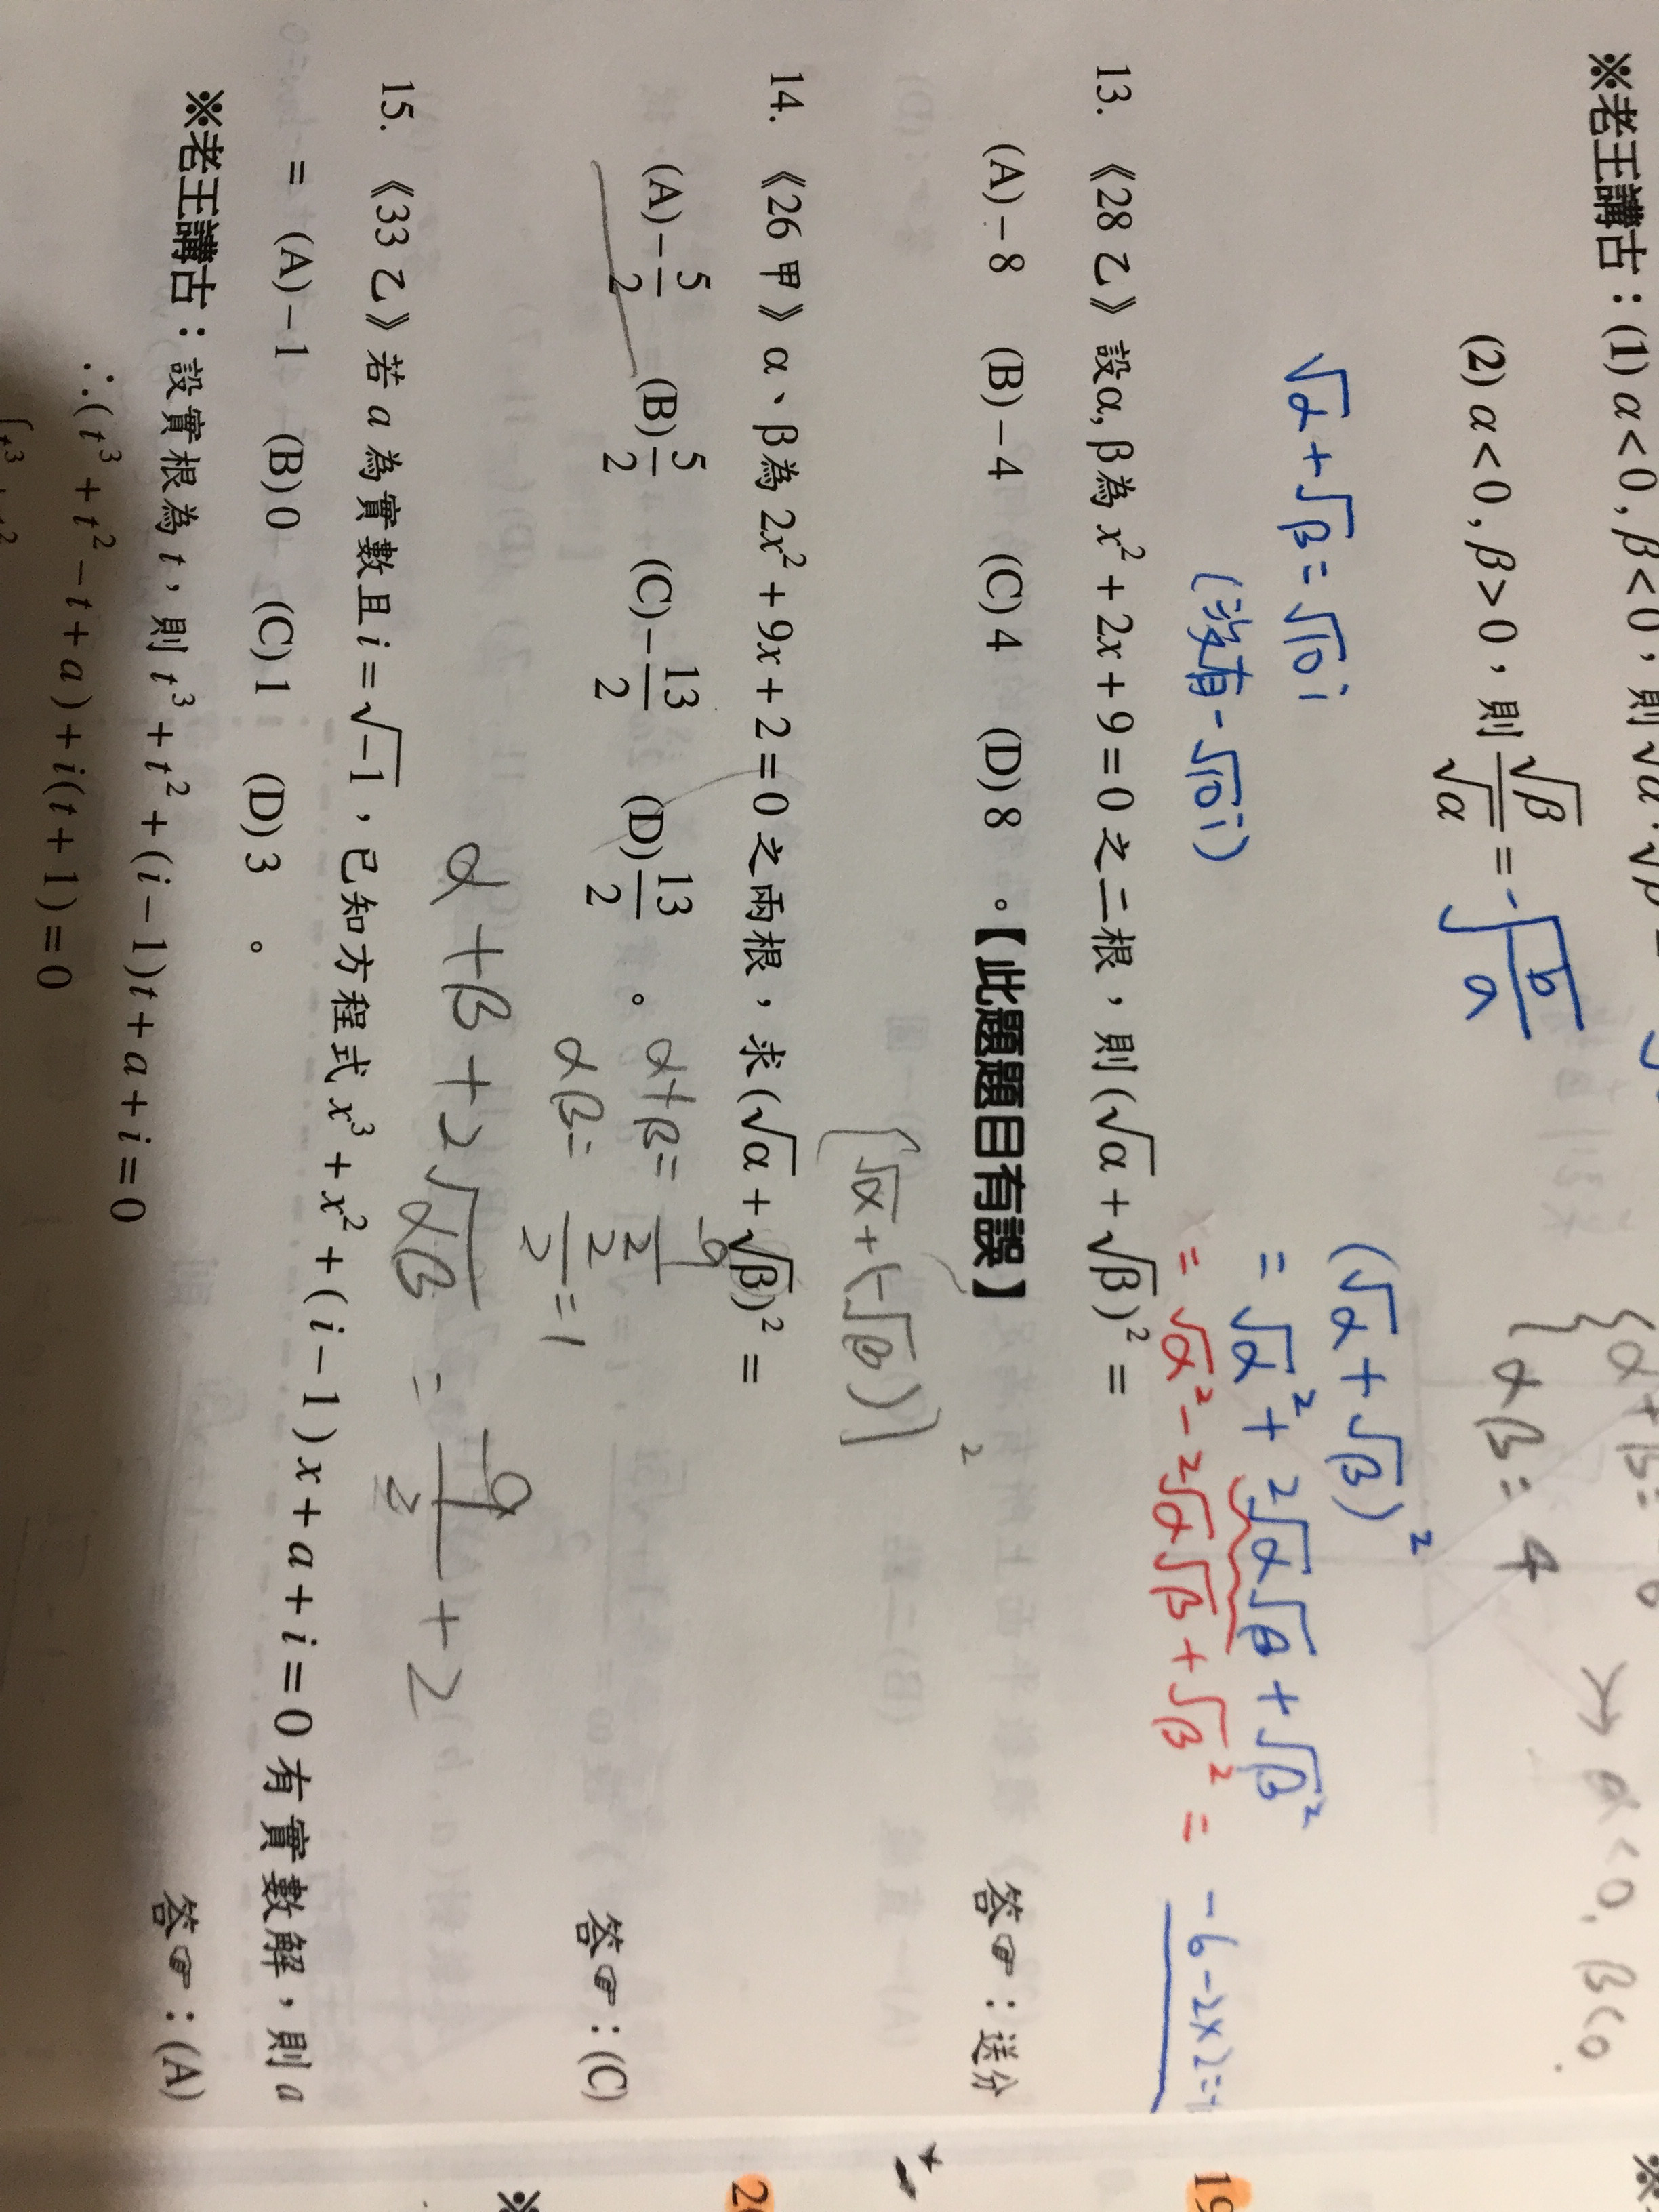 ※老王講古：(1) α<0, β<0，則√α·√β
{α+β=
αβ=4 → α<0, β<0.
(2) α<0, β>0，則 √β/√α = -√(b/a)
(√α+√β)²
√α+√β=√10 i
=√α²+2√α√β+√β²
(沒有-√10 i)
=√α²-2√α√β+√β²= -6-2×2=
13. 《28 乙》設α, β為 x²+2x+9=0 之二根，則(√α+√β)²=
(A)-8 (B)-4 (C)4 (D)8 。【此題題目有誤】 答☞：送分
[√α+(-√β)]²
14. 《26 甲》α、β為 2x²+9x+2=0 之兩根，求(√α+√β)²=
(A)-5/2 (B)5/2 (C)-13/2 (D)13/2 。 答☞：(C)
α+β= -9/2
αβ= 2/2=1
α+β+2√αβ = -9/2+2
15. 《33 乙》若 a 為實數且 i=√-1，已知方程式 x³+x²+(i-1)x+a+i=0 有實數解，則 a
= (A)-1 (B)0 (C)1 (D)3 。 答☞：(A)
※老王講古：設實根為 t，則 t³+t²+(i-1)t+a+i=0
∴(t³+t²-t+a)+i(t+1)=0
19